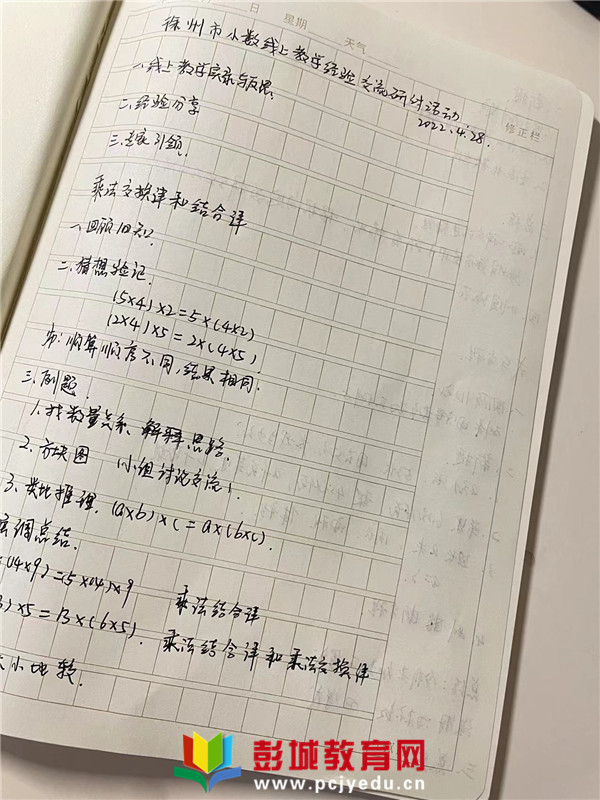 日 星期 天气
徐州市小数线上教学经验交流研讨活动
2022.4.28.
修正栏
一.线上教学实录与反思.
二.经验分享
三.专家引领.
乘法交换律和结合律
一.回顾旧知.
二.猜想验记.
(5×4)×2=5×(4×2)
(2×4)×5=2×(4×5)
顺序不同,结果相同.
三.例题.
1.找数量关系、解释思路.
2.方块图 (小组讨论交流)
3.类比推理.(a×b)×c=a×(b×c).
总结.
(14×9)=(5×14)×9 乘法结合律
)×5=13×(6×5). 乘法结合律和乘法交换律
大小比较.
彭城教育网
www.pcjyedu.cn